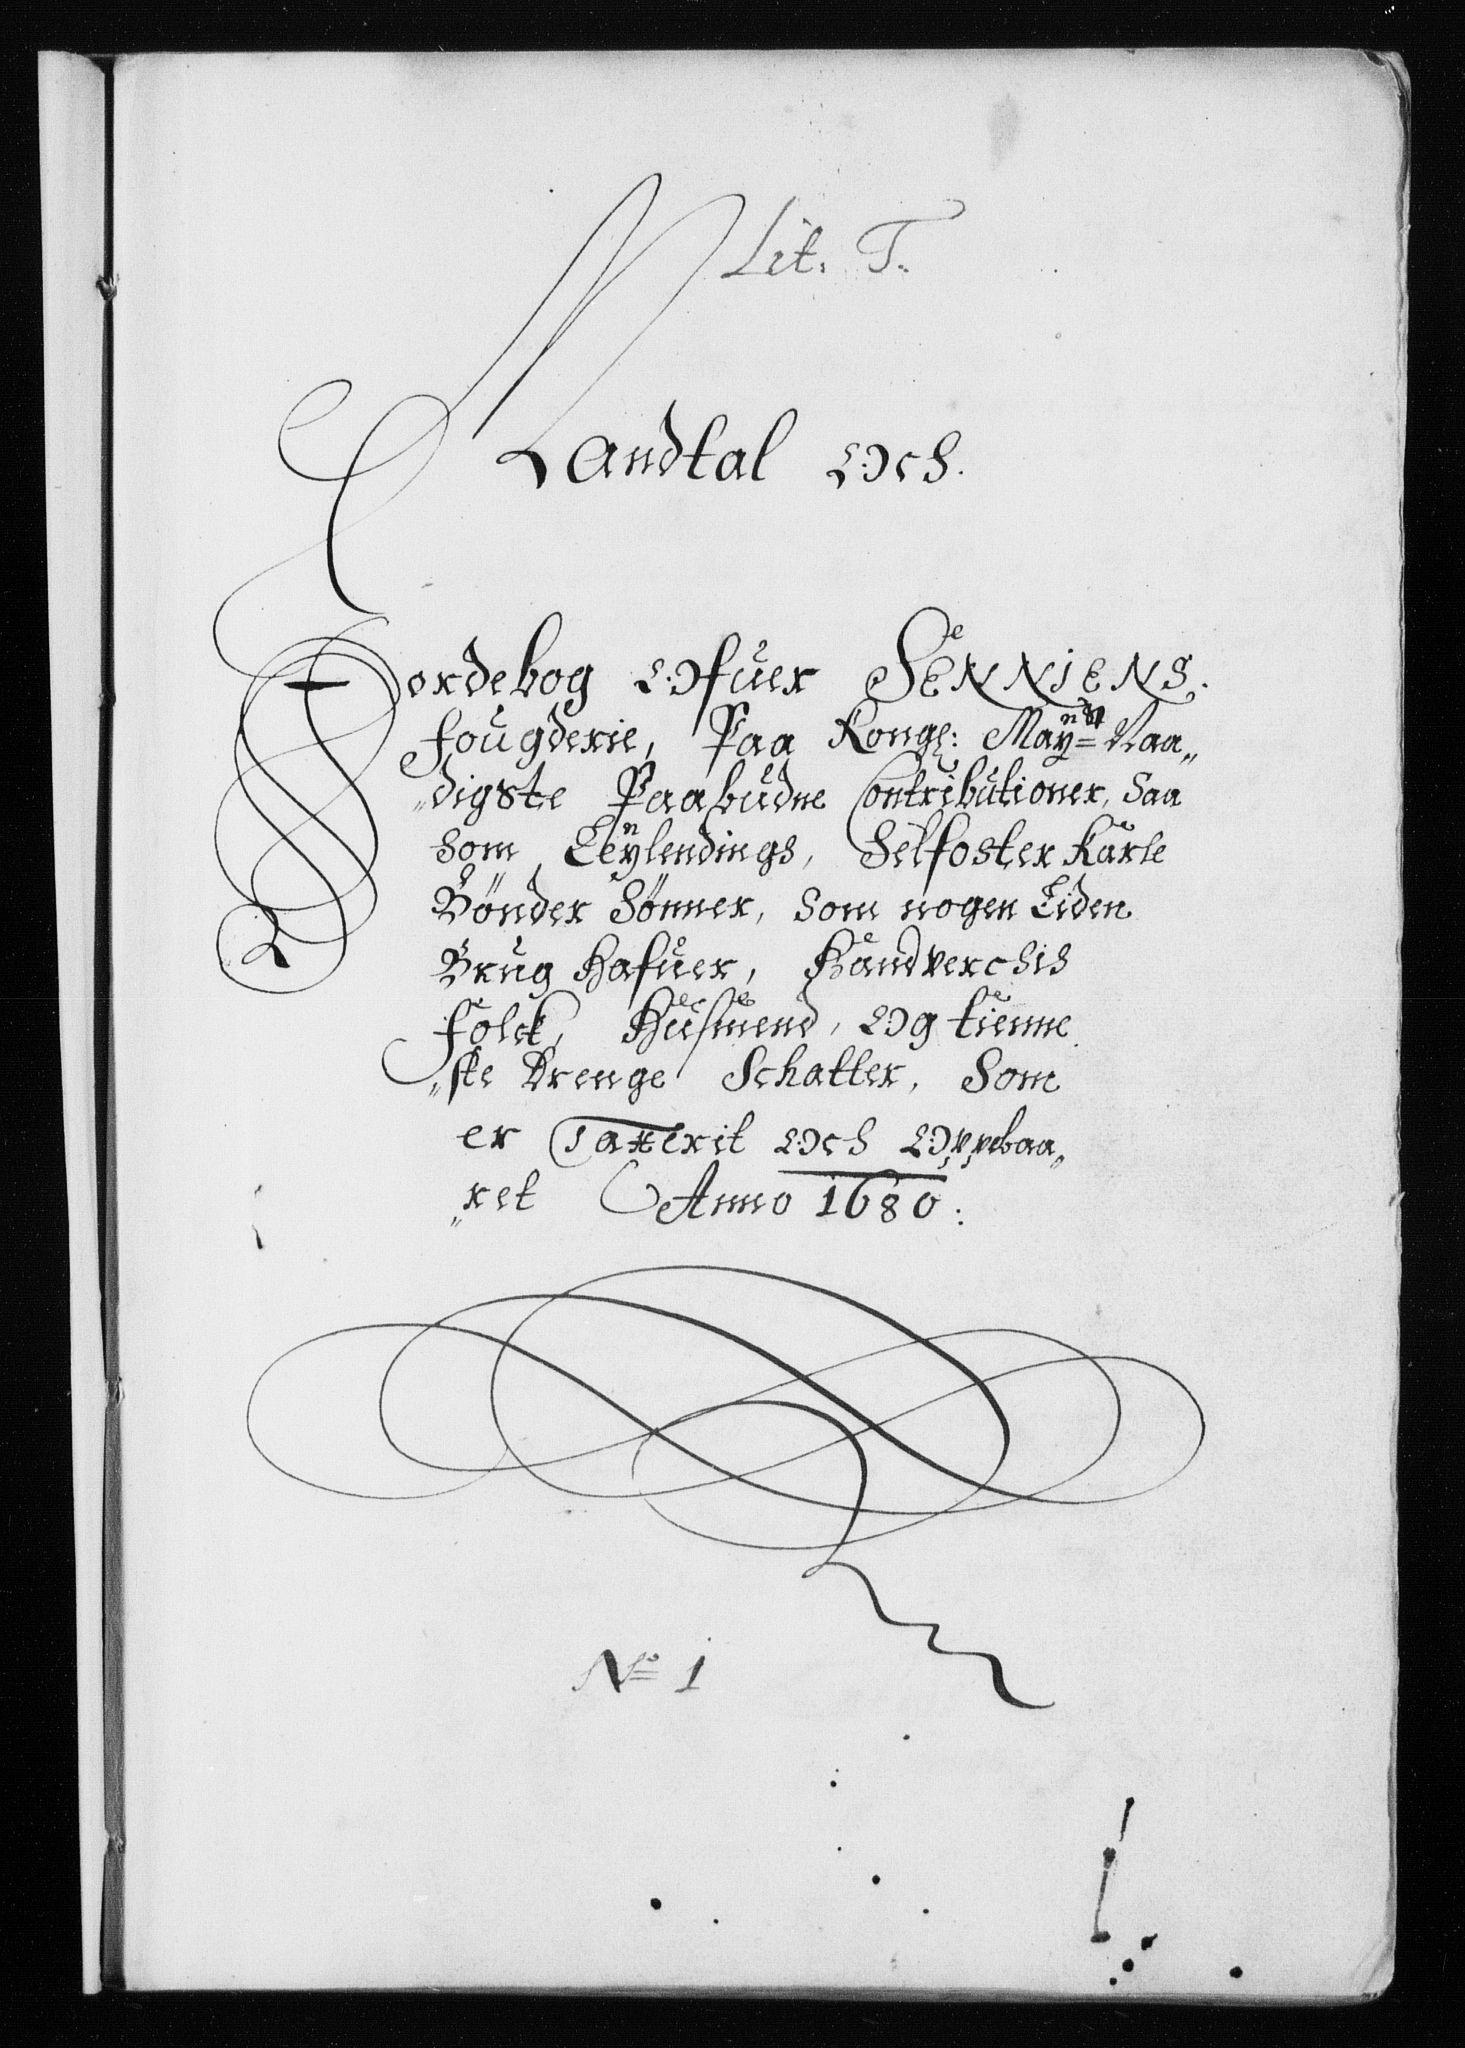 Lit. T.
Mandtal Och.
Jordebog Ofuer Senniens.
fougderie, Paa Kongl: Mayts Naa„
„digste Paabudne Contributioner, Saa
Som Leylendings, Selfoster Karle
Bønder Sønner, Som nogen Eiden
Brug Hafuer, Handverchis
folck, Husmend, Og tienne
„ste Drenge Schatter, Som
er Taxerit Och Oppebaa„
„ret Anno 1680:
No 1